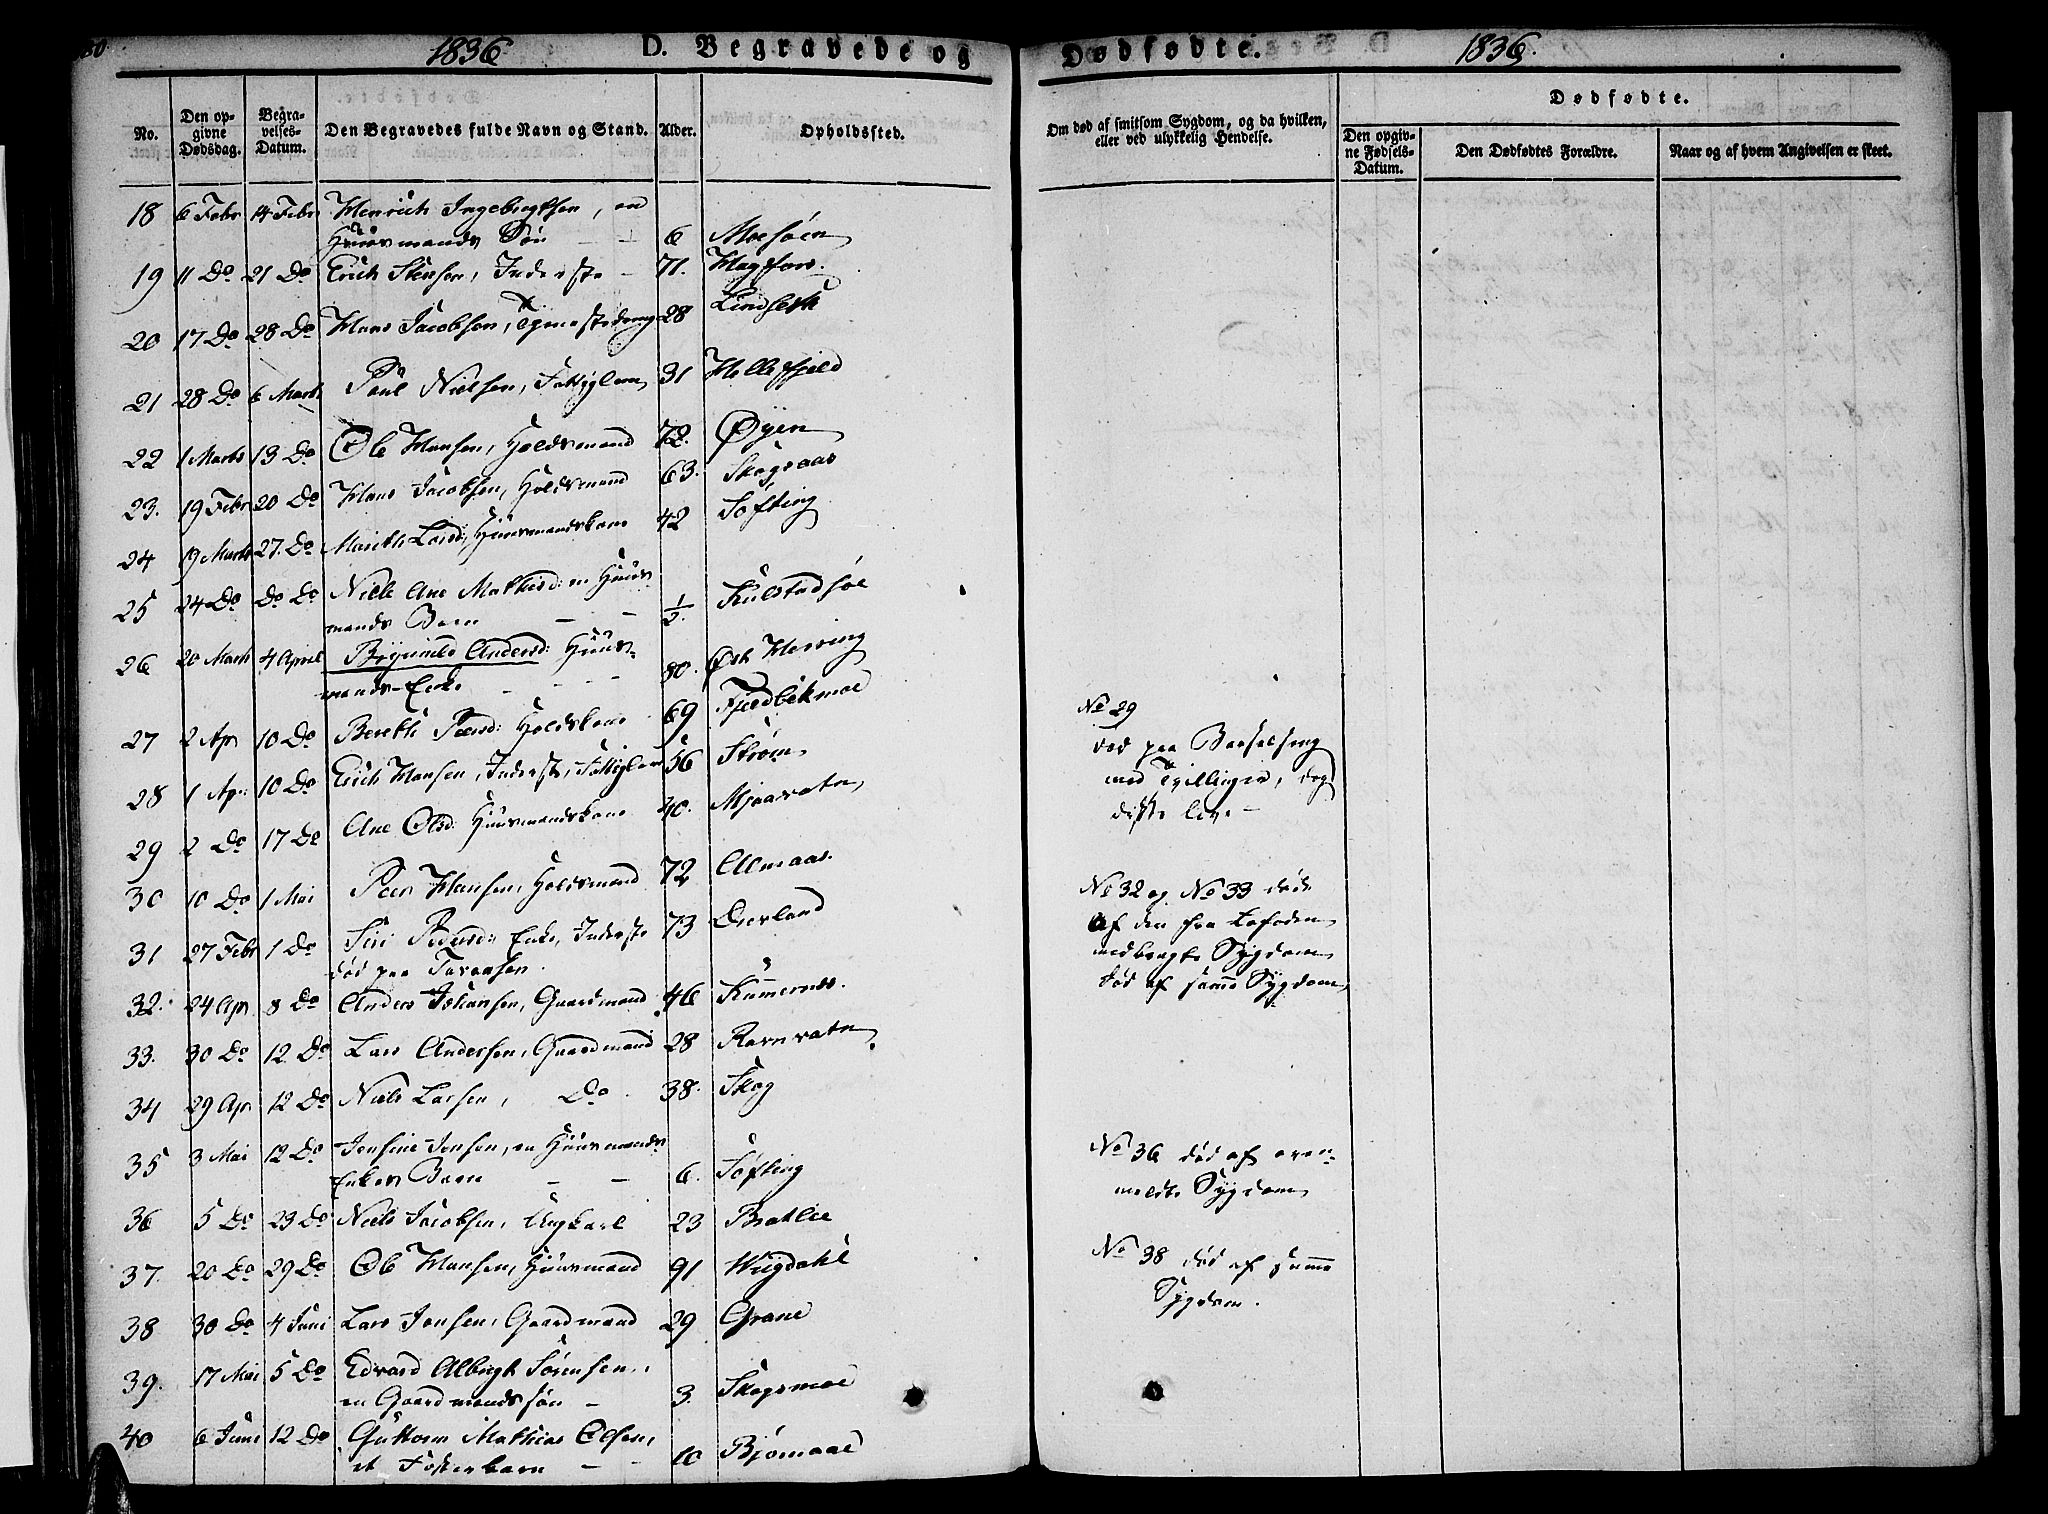 80
1836
D. Begravede og
Dødfødte.
1836.
No.
Den op-
givne
Dødsdag.
Begra-
velses-
Datum.
Den Begravedes fulde Navn og Stand.
Alder.
Opholdssted.
Om død af smitsom Sygdom, og da hvilken,
eller ved ulykkelig Hendelse.
Dødfødte.
Den opgiv-
ne Fødsels-
Datum.
Den Dødfødtes Forældre.
Naar og af hvem Angivelsen er skeet.
18 6 Febr 14 Febr Henrich Ingebrigtsen, en
Huusmands Søn 6 Moesøen
19 11 Do 21 Do Erich Stensen, Inderste 71.
20 17 Do 28 Do Hans Jacobsen, Tjenestedreng 28 Lindseth
21 28 Do 6 Marts Paul Nielsen, Fattiglem 31 Hellefjeld
22 1 Marts 13 Do Ole Hansen, Holdsmand 72. Øyen
23. 19 Febr 20 Do Hans Jacobsen, Holdsmand 63. Skogsaas
24 19 Marts 27. Do Marith Larsd: Huusmandskone 42 Søfting
25 24 Do Do Do Niels Ane Mathisd: en Huus-
mands Barn 1/2 Kulstadsøe
26 20 Marts 4 April Andersd: Huus-
mands-Enke 80. Øst Herring
27 2 Apr 10 Do Bereth Peersd: Holdskone 69 Fjeldbekmoe
28 1 Apr: 10 Do Erich Hansen, Inderste, Fattiglem 56 Strøm
29 2 Do 17 Do Ane Olsd: Huusmandskone 40. Mjaavatn
30 10 Do 1 Mai Peer Hansen, Holdsmand 72 Almaas.
31 27 Febr 1 Do Siri Pedersd: Enke, Inderste 73
død paa
32. 24 Apr 8 Do Anders Johansen, Gaardmand 46
33. 30 Do 12 Do Lars Andersen, Gaardmand 28 Ravnvatn
34 29 Apr 12 Do Niels Larsen, Do 38. Skog
35 3 Mai 12 Do Jensine Jensen, en Huusmands
Enkes Barn 6. Søfting
36 5 Do 23 Do Niels Jacobsen, Ungkarl 23 Bratlie
37. 20 Do 29 Do Ole Hansen, Huusmand 91
38 30 Do 4 Juni Lars Jensen, Gaardmand 29 Grane
39. 17 Mai 5 Do Edvard Albrigt Sørensen,
en Gaardmandssøn 3. Skogsmoe
40 6 Juni 12 Do Guttorm Mathias Olsen,
et Fosterbarn 10 Bjømaae
No 29
død paa Barselseng
med Tvillinger, dog
disse leve
No 32 og No 33 døde
af den fra Lofoden
medbragte Sygdom
død af samme Sygdom
No 36 død af oven-
meldte Sygdom
No 38 død af samme
Sygdom.